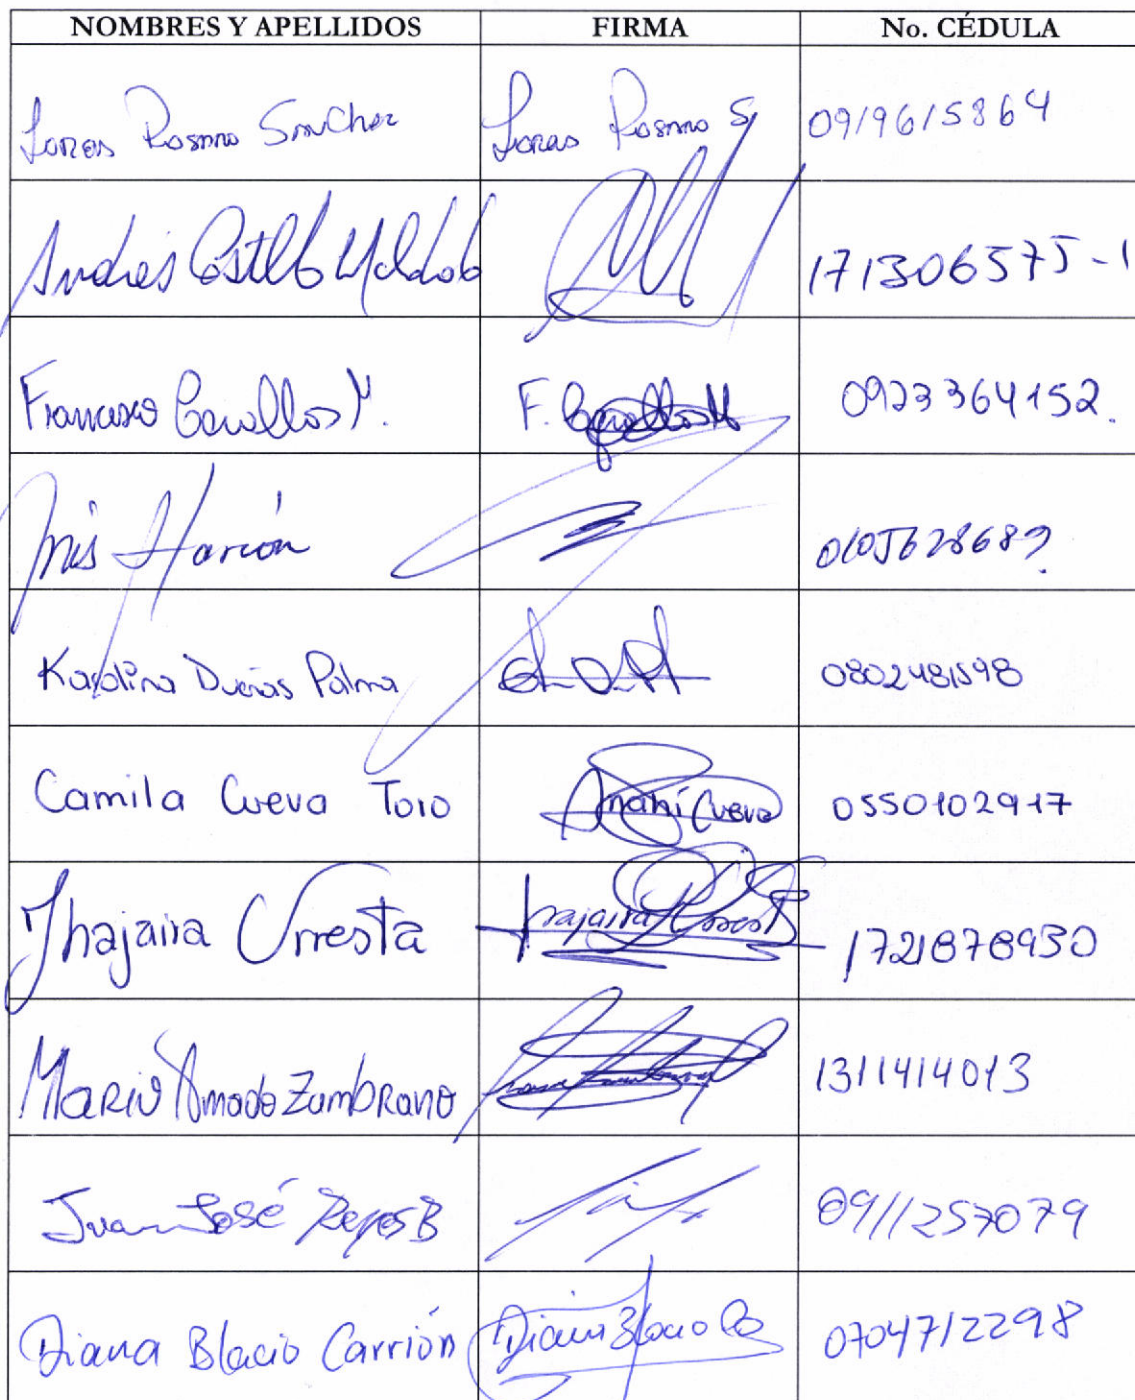 NOMBRES Y APELLIDOS FIRMA No. CÉDULA
Sánchez 0919615864
Andrés Castillo Maldonado 171306575-1
Francisco Cevallos M. F. Cevallos M 0923364152.
Karolina Dueñas Palma 0802481598
Camila Cueva Toro Anahí Cueva 0550102917
Jhajaira Urresta 1721878930
Mario Amado Zambrano 1311414013
Juan José Reyes B 0911257079
Diana Blacio Carrión Diana Blacio 0704712298